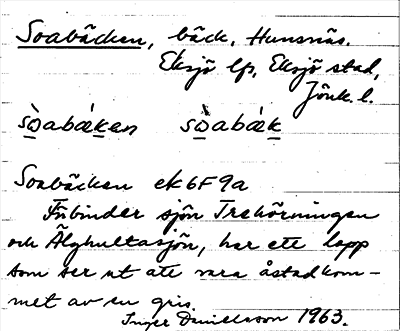 Soabäcken, bäck, Hunsnäs.
Eksjö lfs, Eksjö stad,
Jönk. l.
sòabäken sòabäk
Soabäcken ek 6F9a
Förbinder sjön Trehörningen
och Älghultasjön, har ett lopp
som ser ut att vara åstadkom-
met av en gris.
Inger Danielsson 1963.